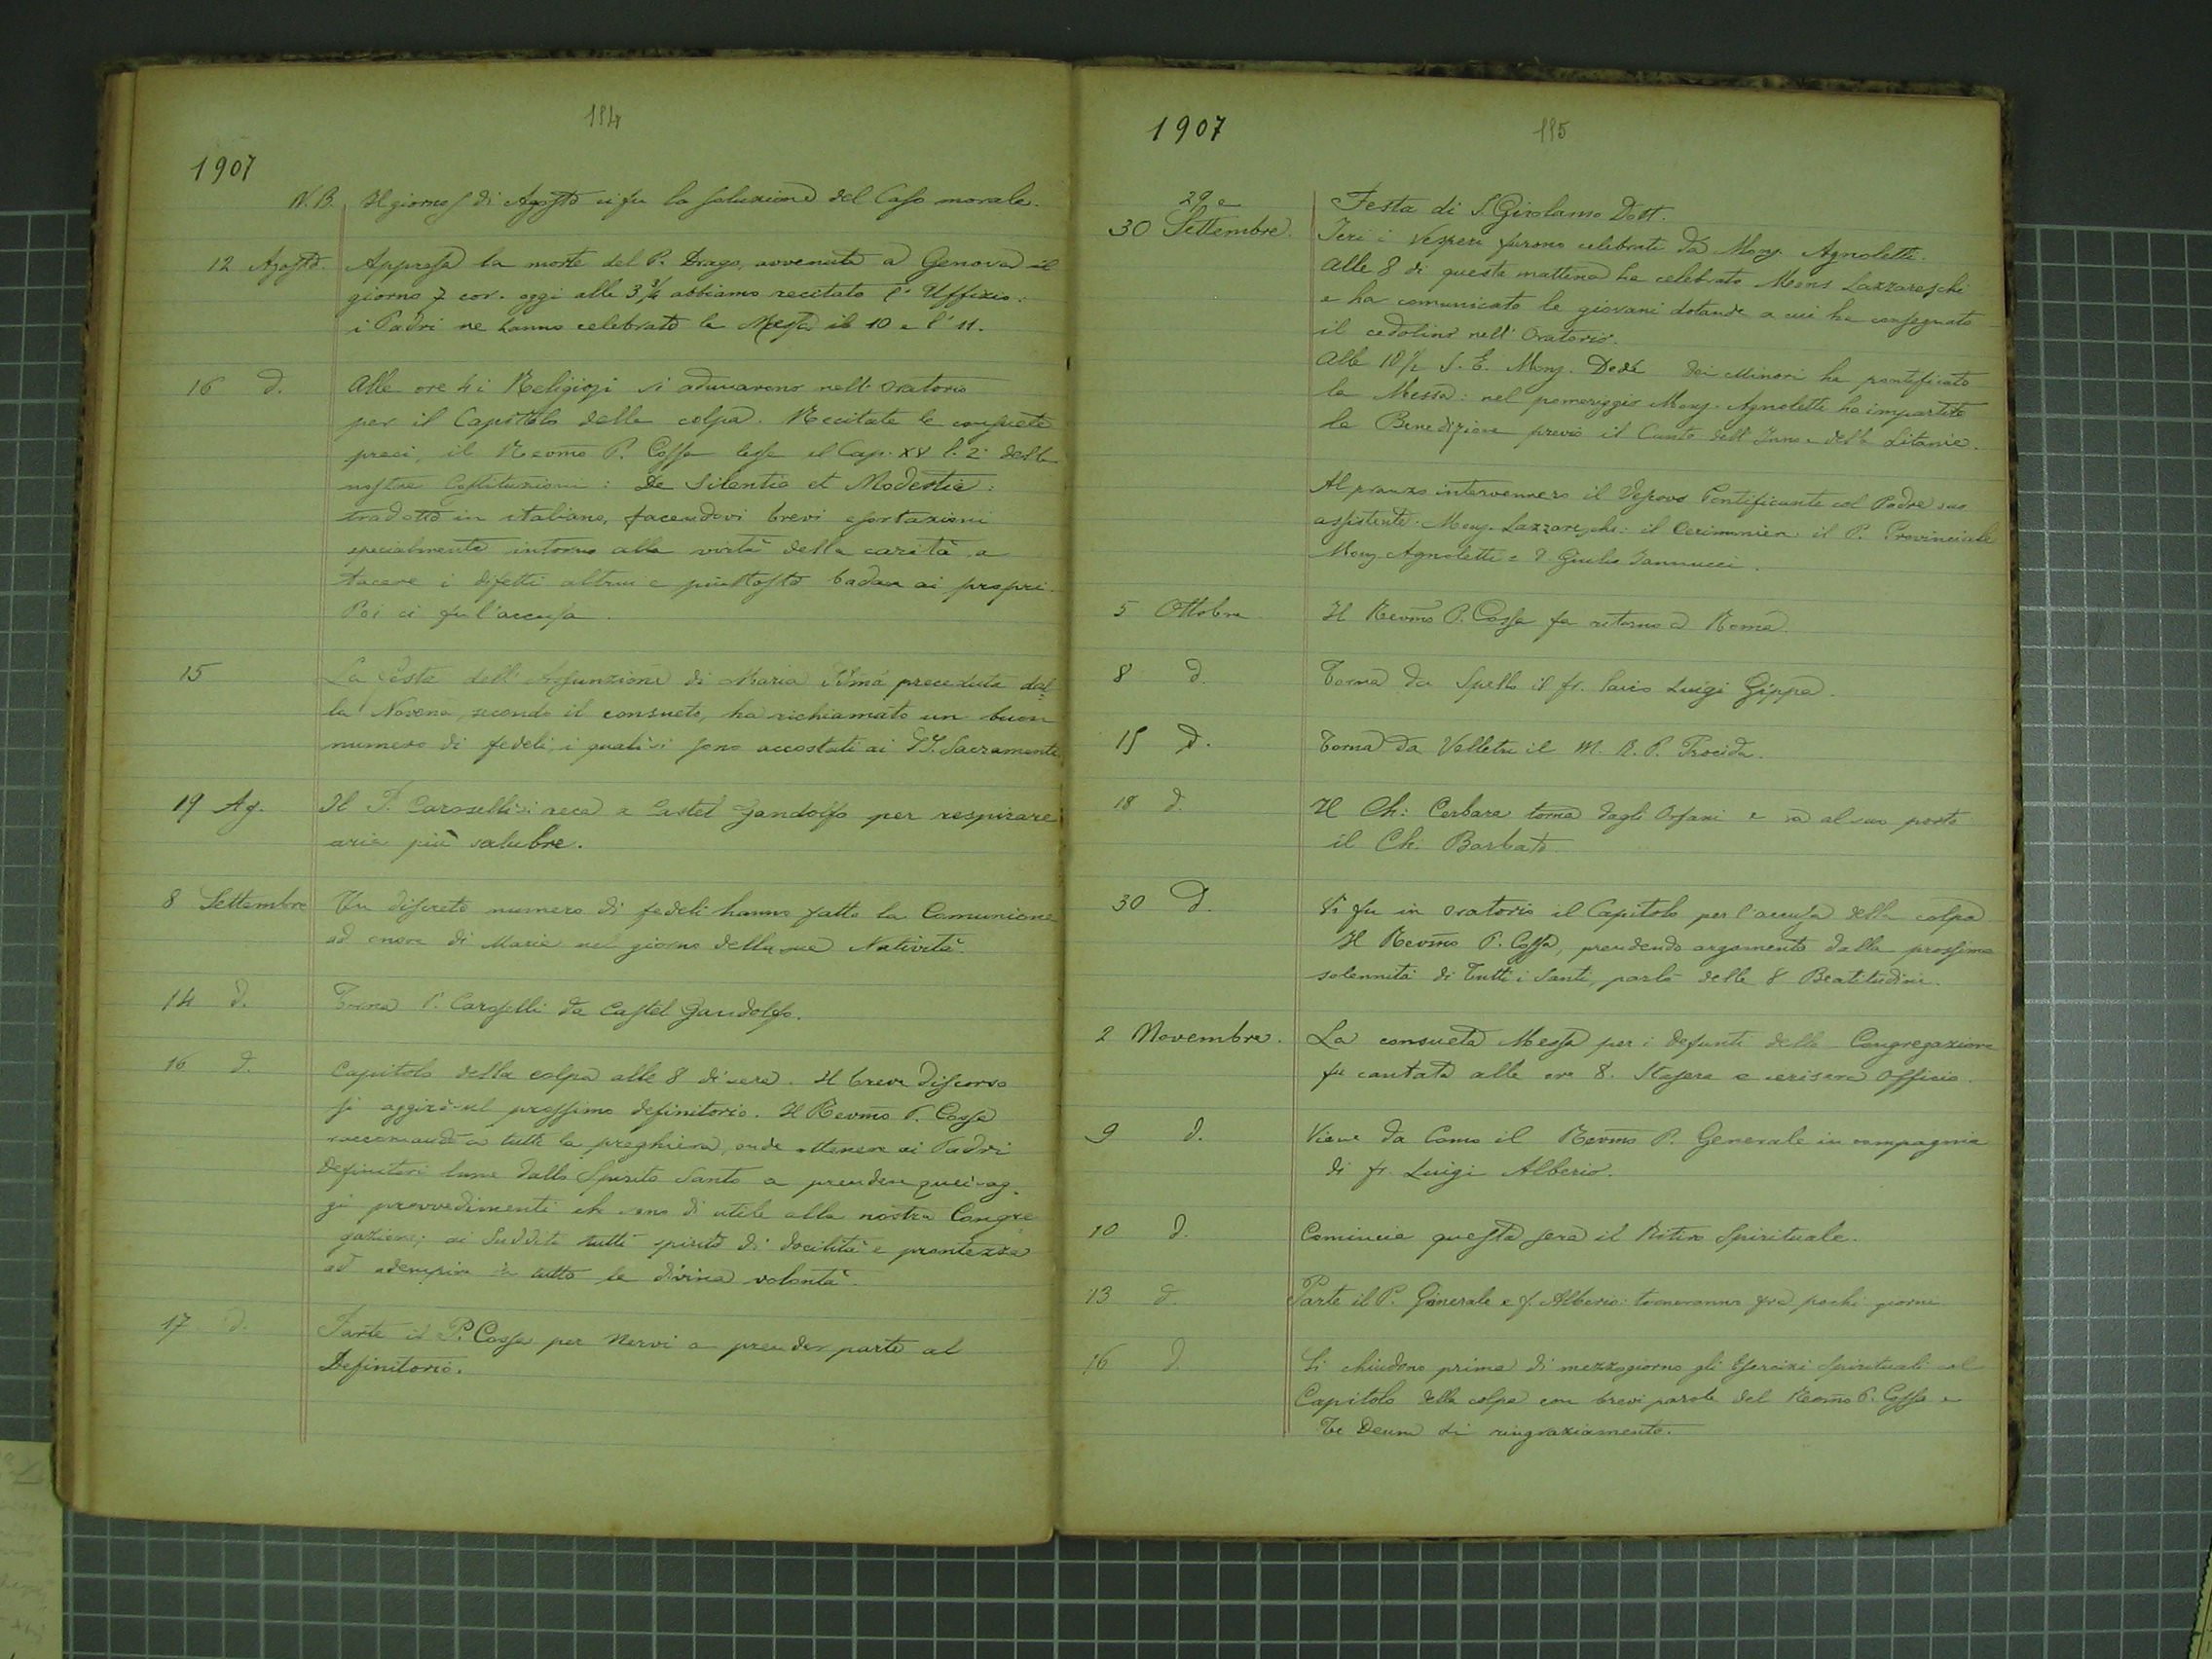 184
1907
N.B. Il giorno 5 di Agosto ci fu la soluzione del Caso morale.
12 Agosto. Appresa la morte del P. Drago, avvenuta a Genova il
giorno 7 cor. oggi alle 3 3/4 abbiamo recitato l'Uffizio:
i Padri ne hanno celebrato la Messa il 10 e l'11.
16 d. Alle ore 4 i Religiosi si adunarono nell'oratorio
per il Capitolo della colpa. Recitate le consuete
preci, il Revmo P. Cossa lesse il Cap. XV l. 2º delle
nostre Costituzioni: De Silentio et Modestia:
tradotto in italiano, facendovi brevi esortazioni
specialmente intorno alla virtù della carità, a
tacere i difetti altrui e piuttosto badare ai propri.
Poi ci fu l'accusa.
15 La festa dell'Assunzione di Maria SSma preceduta dal=
la Novena, secondo il consueto, ha richiamato un buon
numero di fedeli, i quali si sono accostati ai SS. Sacramenti
19 Ag. Il P. Caroselli si reca a Castel Gandolfo per respirare
aria più salubre.
8 Settembre Un discreto numero di fedeli hanno fatto la Comunione
ad onore di Maria nel giorno della sua Natività.
14 d. Torna P. Caroselli da Castel Gandolfo.
16 d. Capitolo della colpa alle 8 di sera. Il breve discorso
si aggirò sul prossimo definitorio. Il Revmo P. Cossa
raccomandò a tutti la preghiera, onde ottenere ai Padri
Definitori lume dallo Spirito Santo a prendere quei sag-
gi provvedimenti che sono di utile alla nostra Congre
gazione; ai Sudditi tutti spirito di docilità e prontezza
ad adempire in tutto la divina volontà.
17 d. Parte il P. Cossa per Nervi a prender parte al
Definitorio.
185
1907
29 e
30 Settembre. Festa di S. Girolamo Dott.
Ieri i Vesperi furono celebrati da Mons. Agnoletti.
Alle 8 di questa mattina ha celebrato Mons Lazzareschi
e ha comunicato le giovani dotande a cui ha consegnato
il cedolino nell'Oratorio.
Alle 10 1/2 S. E. Mons. Dedè dei Minori ha pontificato
la Messa: nel pomeriggio Mons. Agnoletti ha impartito
la Benedizione previo il Canto dell'Inno e delle Litanie.
Al pranzo intervennero il Vescovo Pontificante col Padre suo
assistente. Mons. Lazzareschi: il Cerimoniere il P. Provinciale
Mons Agnoletti e D. Giulio Iannucci.
5 Ottobre Il Revmo P. Cossa fa ritorno a Roma.
8 d. Torna da Spello il fr. laico Luigi Gippa.
15 d. Torna da Velletri il M. R. P. Procida.
18 d. Il Ch: Cerbara torna dagli Orfani e va al suo posto
il Ch. Barbato
30 d. Vi fu in oratorio il Capitolo per l'accusa della colpa
Il Revmo P. Cossa, prendendo argomento dalla prossima
solennità di Tutti i Santi, parlò delle 8 Beatitudini.
2 Novembre. La consueta Messa per i defunti della Congregazione
fu cantata alle ore 8. Stasera e ierisera Officio.
9 d. Viene da Como il Revmo P. Generale in compagnia
di fr. Luigi Alberio.
10 d. Comincia questa sera il Ritiro Spirituale.
13 d. Parte il P. Generale e f. Alberio: torneranno fra pochi giorni
16 d. Si chiudono prima di mezzogiorno gli Esercizi Spirituali col
Capitolo della colpa con brevi parole del Revmo P. Cossa e
Te Deum di ringraziamento.